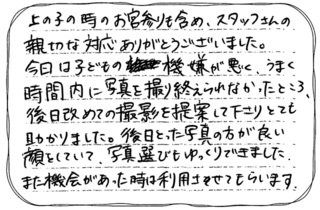 上の子の時のお宮参りも含め、スタッフさんの
親切な対応ありがとうございました。
今日は子どもの機嫌が悪く、うまく
時間内に写真を撮り終えられなかったところ、
後日改めての撮影を提案して下さりとても
助かりました。後日とった写真の方が良い
顔をしていて、写真選びもゆっくりできました。
また機会があった時は利用させてもらいます。